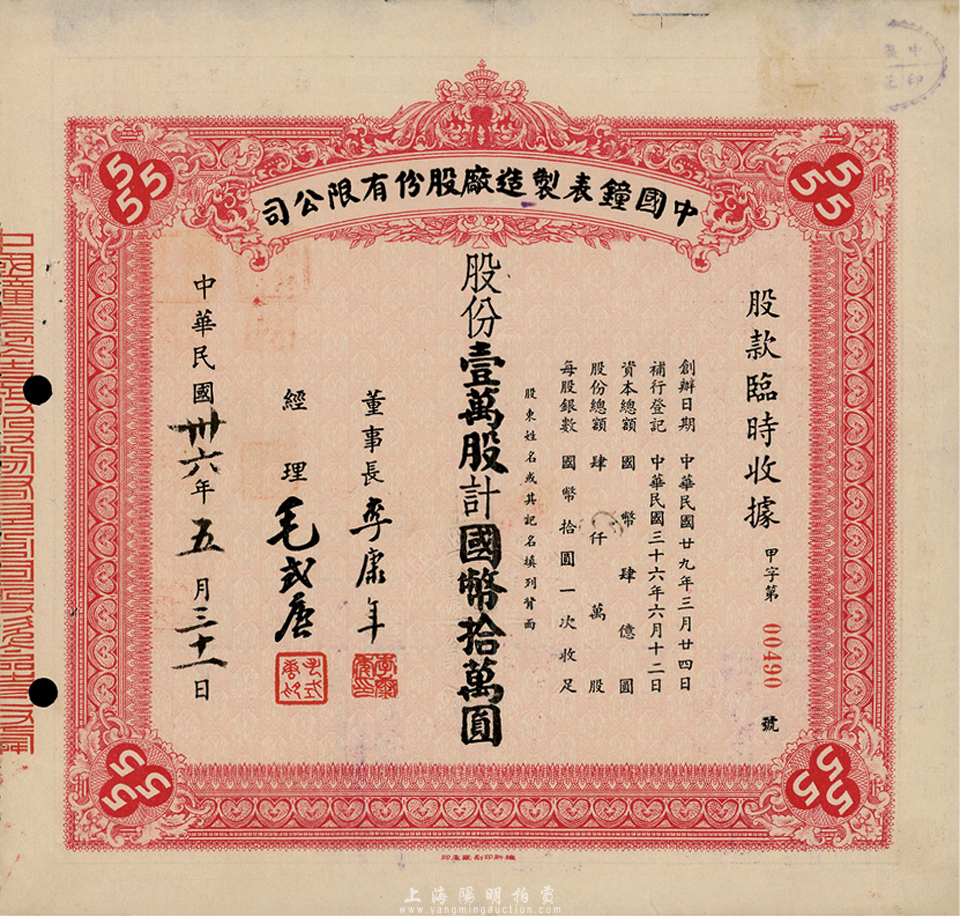 中國鐘表製造廠股份有限公司
股款臨時收據 甲字第 00490 號
創辦日期 中華民國廿九年三月廿四日
補行登記 中華民國三十六年六月十二日
資本總額 國幣肆億圓
股份總額 肆仟萬股
每股銀數 國幣拾圓一次收足
股東姓名或其記名填列背面
股份壹萬股計國幣拾萬圓
董事長 李康年
經理 毛式唐
中華民國卅六年五月三十一日
555
555
555
555
上海陽明拍賣
www.yangmingauction.com